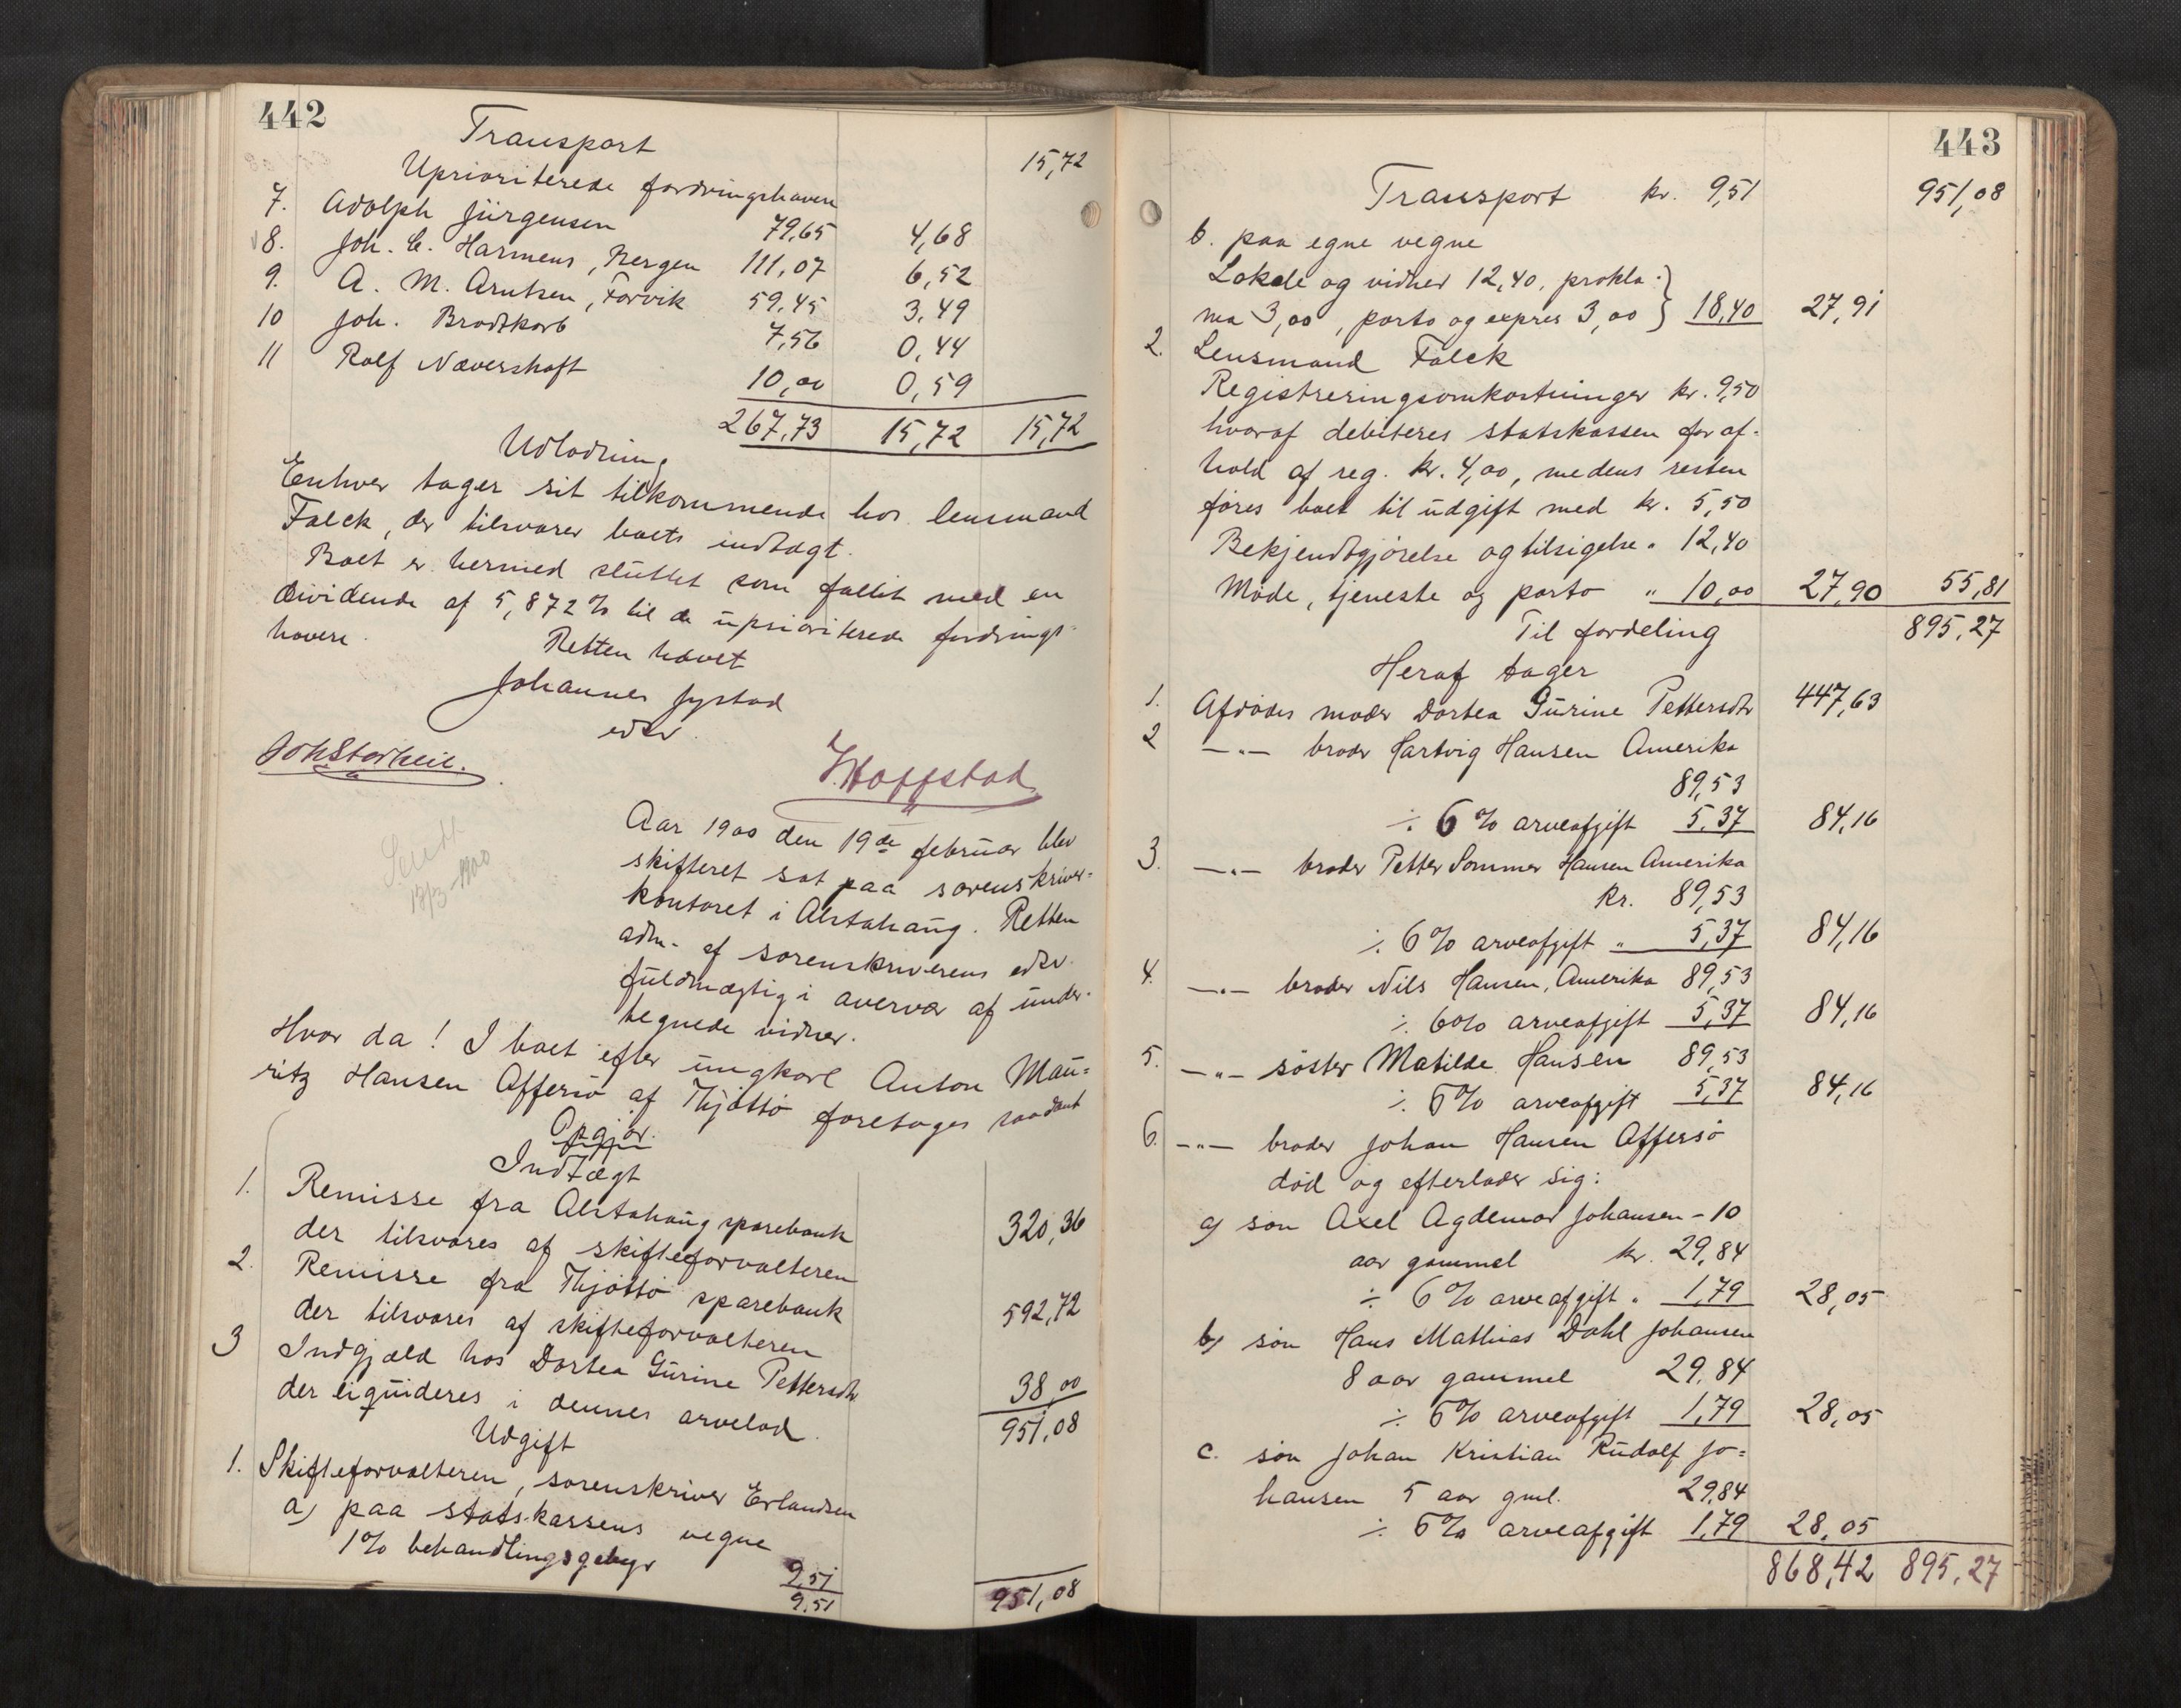 442
Transport 15,72
Uprioriterede fordringshavere
7. Adolph Jürgensen 79,65 4,68
8. Joh. C. Harmens, Bergen 111,07 6,52
9. A. M. Arntsen, Forvik 59,45 3,49
10 Joh. Brodtkorb 7,56 0,44
11 Rolf Næverskoft 10,00 0,59
267,73 15,72 15,72
Udlodning
Enhver tager sit tilkommende hos lensmand
Falck, der tilsvarer boets indtægt.
Boet er hermed sluttet som fallit med en
dividende af 5,872% til de uprioriterede fordrings-
havere.
Retten hævet
Johannes Jystad
edsv.
Joh Storheil.
J. Hoffstad
Sendt
19/3-1900
Aar 1900 den 19de februar blev
skifteret sat paa sorenskriver-
kontoret i Alstahaug. Retten
adm. af sorenskriverens edsv.
fuldmægtig i overvær af under-
tegnede vidner.
Hvor da! I boet efter ungkarl Anton Mau-
ritz Hansen Offersø af Thjøttø foretages saadant
Opgjør.
Indtægt
1. Remisse fra Alstahaug sparebank
der tilsvares af skifteforvalteren 320,36
2. Remisse fra Thjøttø sparebank
der tilsvares af skifteforvalteren 592,72
3 Indgjæld hos Dortea Gurine Pettersdtr
der liquideres i dennes arvelod. 38,00
951,08
Udgift
1. Skifteforvalteren, sorenskriver Erlandsen
a) paa statskassens vegne
1% behandlingsgebyr 9,51
9,51 951,08
443
Transport kr. 9,51 951,08
b. paa egne vegne
Lokale og vidner 12,40, prokla-
ma 3,00, porto og expres 3,00 } 18,40 27,91
2. Lensmand Falck
Registreringsomkostninger kr. 9,50
hvoraf debiteres statskassen for af-
hold af reg. kr. 4,00, medens resten
føres boet til udgift med kr. 5,50
Bekjendtgjørelse og tilsigelse " 12,40
Møde, tjeneste og porto " 10,00 27,90 55,81
Til fordeling 895,27
Heraf tager
1. Afdødes moder Dortea Gurine Pettersdtr 447,63
2 —"— broder Hartvig Hansen Amerika
89,53
÷ 6% arveafgift 5,37 84,16
3. —"— broder Petter Sommer Hansen Amerika
kr. 89,53
÷ 6% arveafgift " 5,37 84,16
4. —"— broder Nils Hansen, Amerika 89,53
÷ 6% arveafgift 5,37 84,16
5. —"— søster Matilde Hansen 89,53
÷ 6% arveafgift 5,37 84,16
6. —"— broder Johan Hansen Offersø
død og efterlader sig:
a) søn Axel Agdemar Johansen - 10
aar gammel kr. 29,84
÷ 6% arveafgift " 1,79 28,05
b) søn Hans Mathias Dahl Johansen
8 aar gammel 29,84
÷ 6% arveafgift 1,79 28,05
c. søn Johan Kristian Rudolf Jo-
hansen 5 aar gml. 29,84
÷ 6% arveafgift 1,79 28,05
868,42 895,27